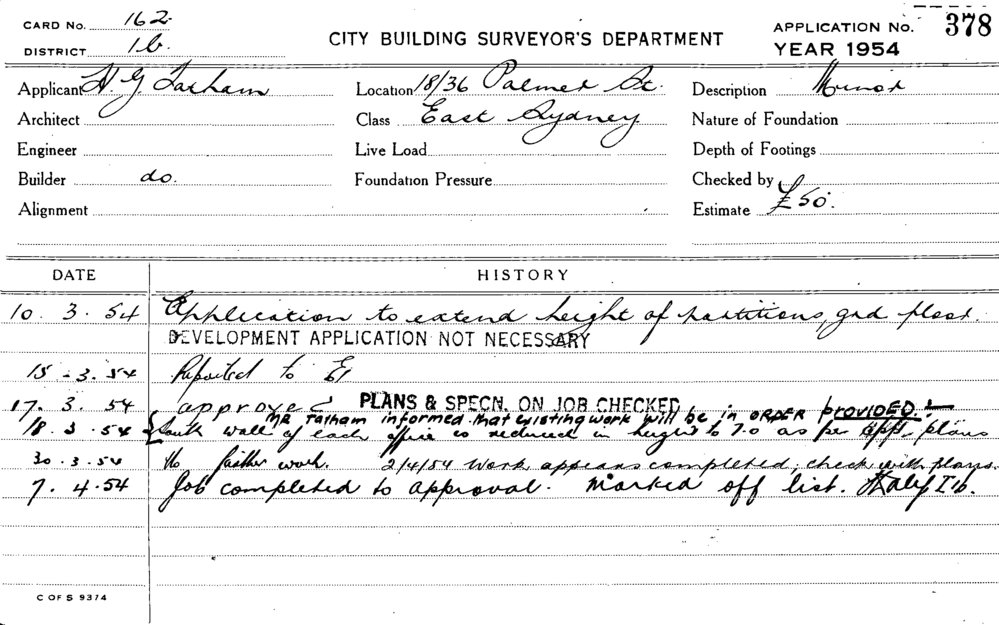 CARD No. 162
DISTRICT 1b.
CITY BUILDING SURVEYOR'S DEPARTMENT
APPLICATION No. 378
YEAR 1954
Applicant H G Tatham
Location 18/36 Palmer St.
Description Minor
Architect
Class East Sydney
Nature of Foundation
Engineer
Live Load
Depth of Footings
Builder do.
Foundation Pressure
Checked by
Alignment
Estimate £50.
DATE HISTORY
10. 3. 54 Application to extend height of partitions, grd floor.
DEVELOPMENT APPLICATION NOT NECESSARY
15 - 3. 54 Reported to
17. 3. 54 approved PLANS & SPECN. ON JOB CHECKED
MR Tatham informed that existing work will be in ORDER PROVIDED:-
18. 3. 54 South wall of each office is reduced in height to 7.0 as per app. plans
30. 3. 54 No further work. 2/4/54 Work appears completed, check with plans.
7. 4. 54 Job completed to approval. Marked off list. I b.
C OF S 9374